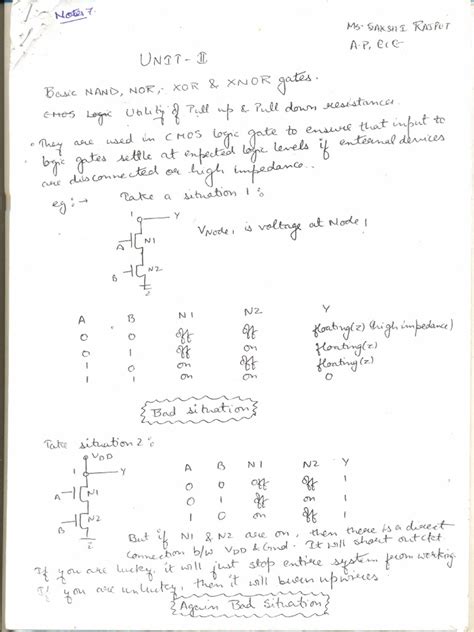 Notes 7.
Ms. SAKSHI RAJPUT
A.P, ECE
UNIT-II
Basic NAND, NOR, XOR & XNOR gates.
CMOS Logic Utility of Pull up & Pull down resistances
• They are used in CMOS logic gate to ensure that input to
logic gates settle at expected logic levels if external devices
are disconnected or high impedance.
eg:→ Take a situation 1:
1 Y
A N1
VNode1 is voltage at Node 1
B N2
A B N1 N2 Y
0 0 off off floating(z) (high impedance)
0 1 off on floating(z)
1 0 on off floating(z)
1 1 on on 0
Bad situation
Take situation 2:
VDD
1 Y
A N1
B N2
A B N1 N2 Y
0 0 off off 1
0 1 off on 1
1 0 on off 1
But if N1 & N2 are on, then there is a direct
connection b/w VDD & Gnd. It will short out ckt
If you are lucky, it will just stop entire system from working
If you are unlucky, then it will burn up wires
Again Bad Situation